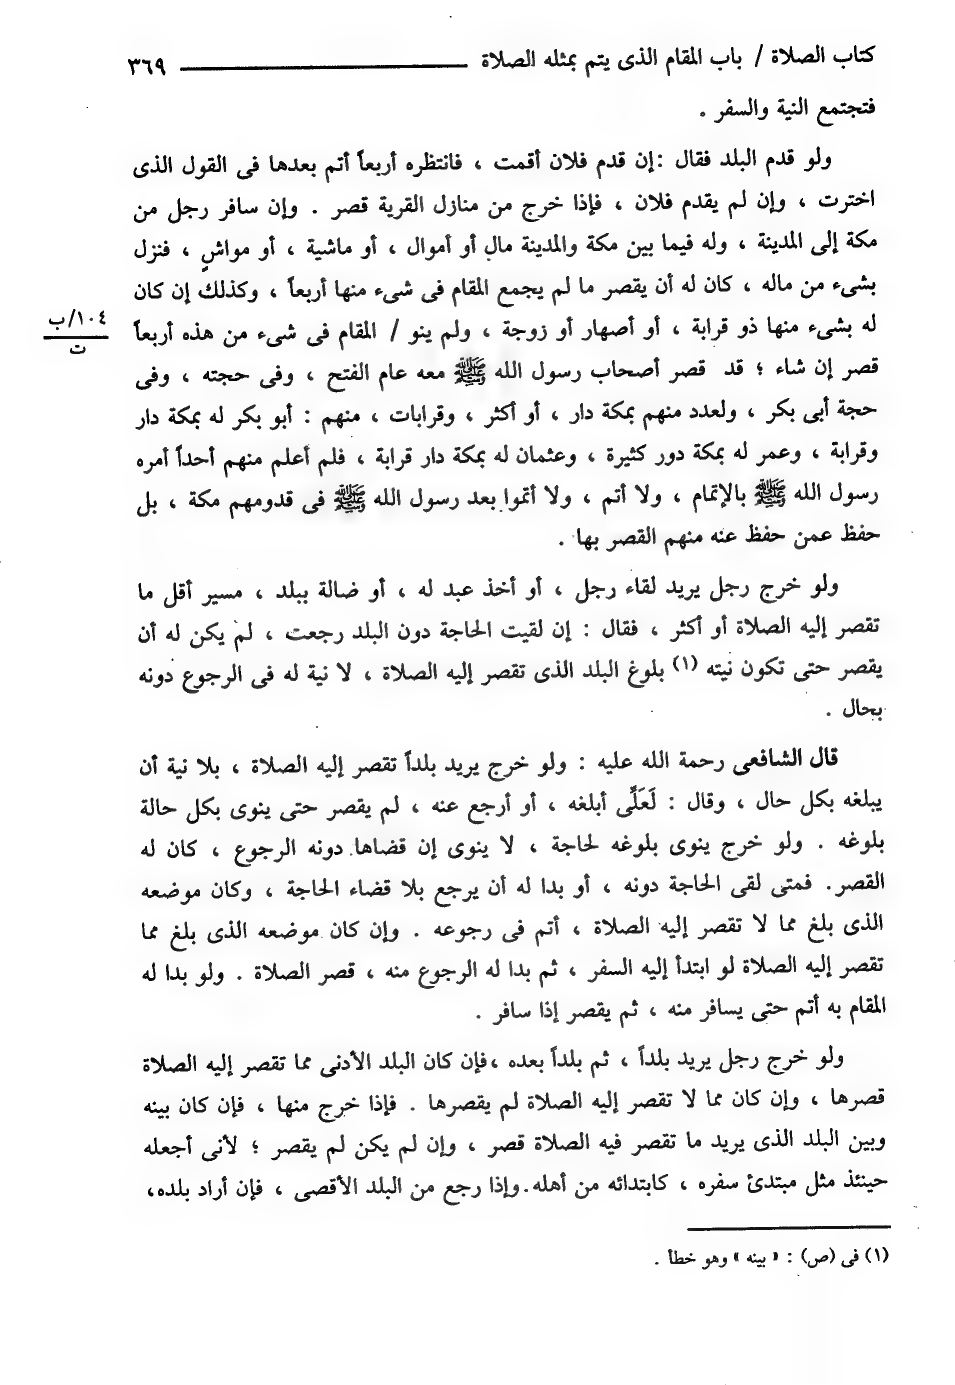 كتاب الصلاة / باب المقام الذى يتم بمثله الصلاة ٣٦٩
فتجتمع النية والسفر .
ولو قدم البلد فقال :إن قدم فلان أقمت ، فانتظره أربعاً أتم بعدها فى القول الذى
اخترت ، وإن لم يقدم فلان ، فإذا خرج من منازل القرية قصر . وإن سافر رجل من
مكة إلى المدينة ، وله فيما بين مكة والمدينة مال أو أموال ، أو ماشية ، أو مواشٍ ، فنزل
بشىء من ماله ، كان له أن يقصر ما لم يجمع المقام فى شىء منها أربعاً ، وكذلك إن كان
له بشىء منها ذو قرابة ، أو أصهار أو زوجة ، ولم ينو / المقام فى شىء من هذه أربعاً
١٠٤/ب
ت
قصر إن شاء ؛ قد قصر أصحاب رسول الله ﷺ معه عام الفتح ، وفى حجته ، وفى
حجة أبى بكر ، ولعدد منهم بمكة دار ، أو أكثر ، وقرابات ، منهم : أبو بكر له بمكة دار
وقرابة ، وعمر له بمكة دور كثيرة ، وعثمان له بمكة دار قرابة ، فلم أعلم منهم أحداً أمره
رسول الله ﷺ بالإتمام ، ولا أتم ، ولا أتموا بعد رسول الله ﷺ فى قدومهم مكة ، بل
حفظ عمن حفظ عنه منهم القصر بها .
ولو خرج رجل يريد لقاء رجل ، أو أخذ عبد له ، أو ضالة ببلد ، مسير أقل ما
تقصر إليه الصلاة أو أكثر ، فقال : إن لقيت الحاجة دون البلد رجعت ، لم يكن له أن
يقصر حتى تكون نيته (١) بلوغ البلد الذى تقصر إليه الصلاة ، لا نية له فى الرجوع دونه
بحال .
قال الشافعى رحمة الله عليه : ولو خرج يريد بلداً تقصر إليه الصلاة ، بلا نية أن
يبلغه بكل حال ، وقال : لَعَلِّى أبلغه ، أو أرجع عنه ، لم يقصر حتى ينوى بكل حالة
بلوغه . ولو خرج ينوى بلوغه لحاجة ، لا ينوى إن قضاها دونه الرجوع ، كان له
القصر. فمتى لقى الحاجة دونه ، أو بدا له أن يرجع بلا قضاء الحاجة ، وكان موضعه
الذى بلغ مما لا تقصر إليه الصلاة ، أتم فى رجوعه . وإن كان موضعه الذى بلغ مما
تقصر إليه الصلاة لو ابتدأ إليه السفر ، ثم بدا له الرجوع منه ، قصر الصلاة . ولو بدا له
المقام به أتم حتى يسافر منه ، ثم يقصر إذا سافر .
ولو خرج رجل يريد بلداً ، ثم بلداً بعده ،فإن كان البلد الأدنى مما تقصر إليه الصلاة
قصرها ، وإن كان مما لا تقصر إليه الصلاة لم يقصرها . فإذا خرج منها ، فإن كان بينه
وبين البلد الذى يريد ما تقصر فيه الصلاة قصر ، وإن لم يكن لم يقصر ؛ لأنى أجعله
حينئذ مثل مبتدئ سفره ، كابتدائه من أهله. وإذا رجع من البلد الأقصى ، فإن أراد بلده،
(١) فى (ص) : « بينه » وهو خطأ .